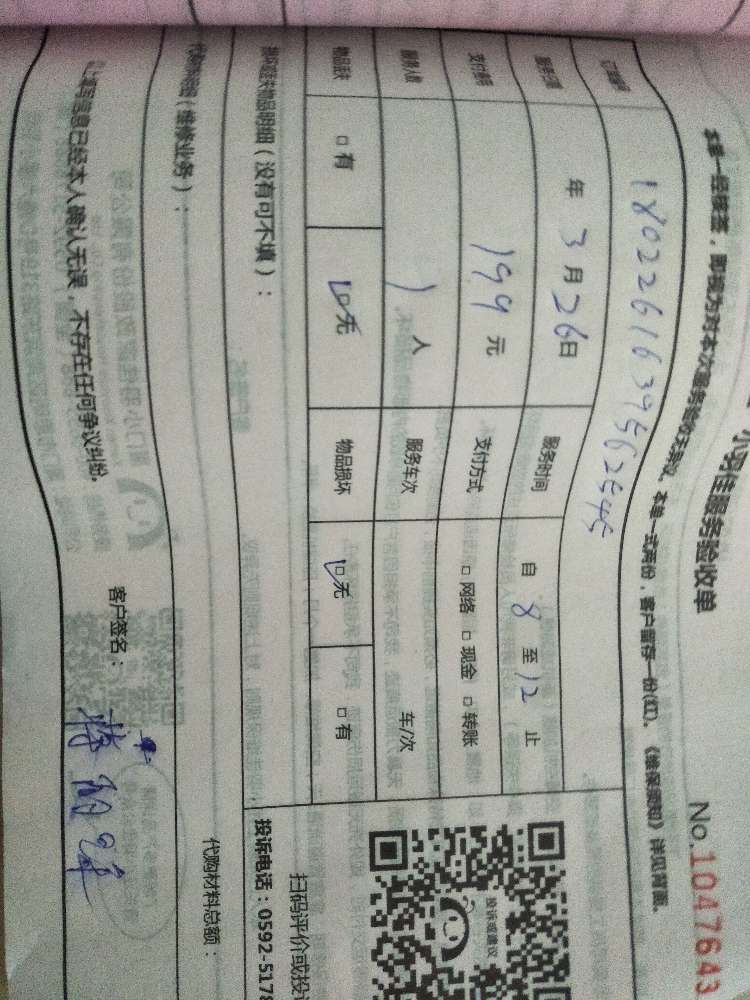 小羽佳服务验收单
No.1047643
本单一经签署，即视为对本次服务验收无异议。本单一式两份，客户留存一份(红)。《维保须知》详见背面。
订单编号 1802261639562545
服务日期 年 3 月 26 日 服务时间 自 8 至 12 止
支付费用 199 元 支付方式 □ 网络 □ 现金 □ 转账
服务人数 1 人 服务车次 车/次
物品丢失 □ 有 □ 无 物品损坏 □ 无 □ 有
损坏或丢失物品明细（没有可不填）：
投诉或建议
扫码评价或投诉
投诉电话：0592-5178
（维修业务）：
代购材料总额：
信息已经本人确认无误，不存在任何争议纠纷。
客户签名：